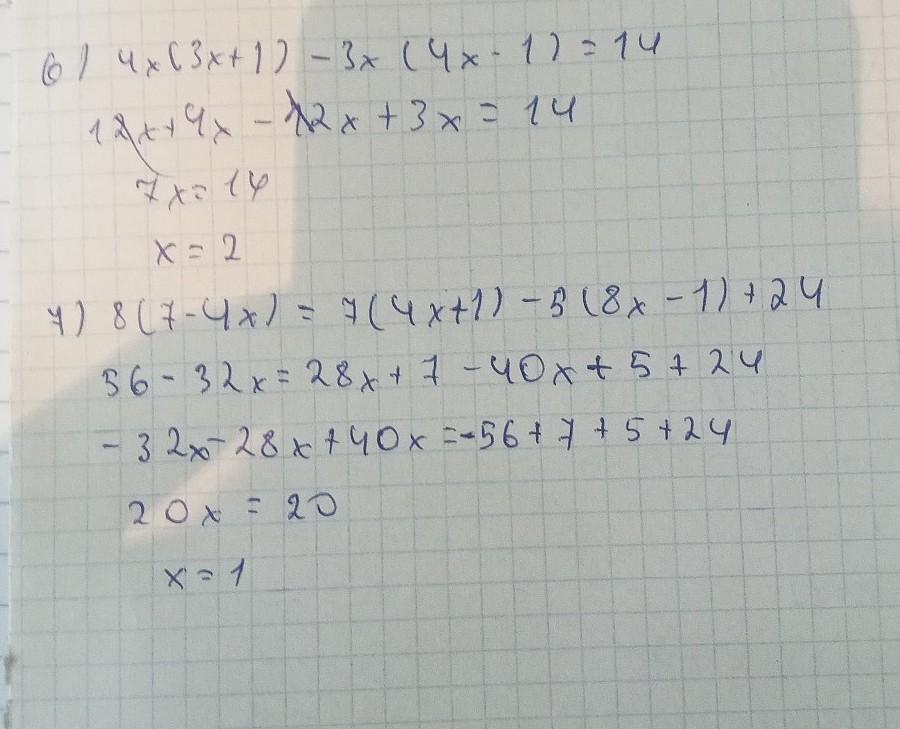 6) 4x(3x+1) - 3x(4x-1) = 14
12x+4x - 12x + 3x = 14
7x = 14
x = 2
7) 8(7-4x) = 7(4x+1) - 5(8x-1) + 24
56 - 32x = 28x + 7 - 40x + 5 + 24
-32x - 28x + 40x = -56 + 7 + 5 + 24
20x = 20
x = 1